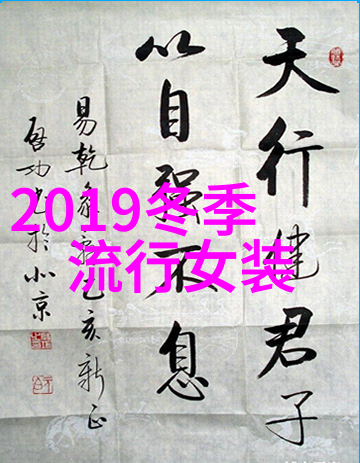 天行健君子
以自强不息
易乾象乙亥新正
启功书於北京
2019冬季
流行女装